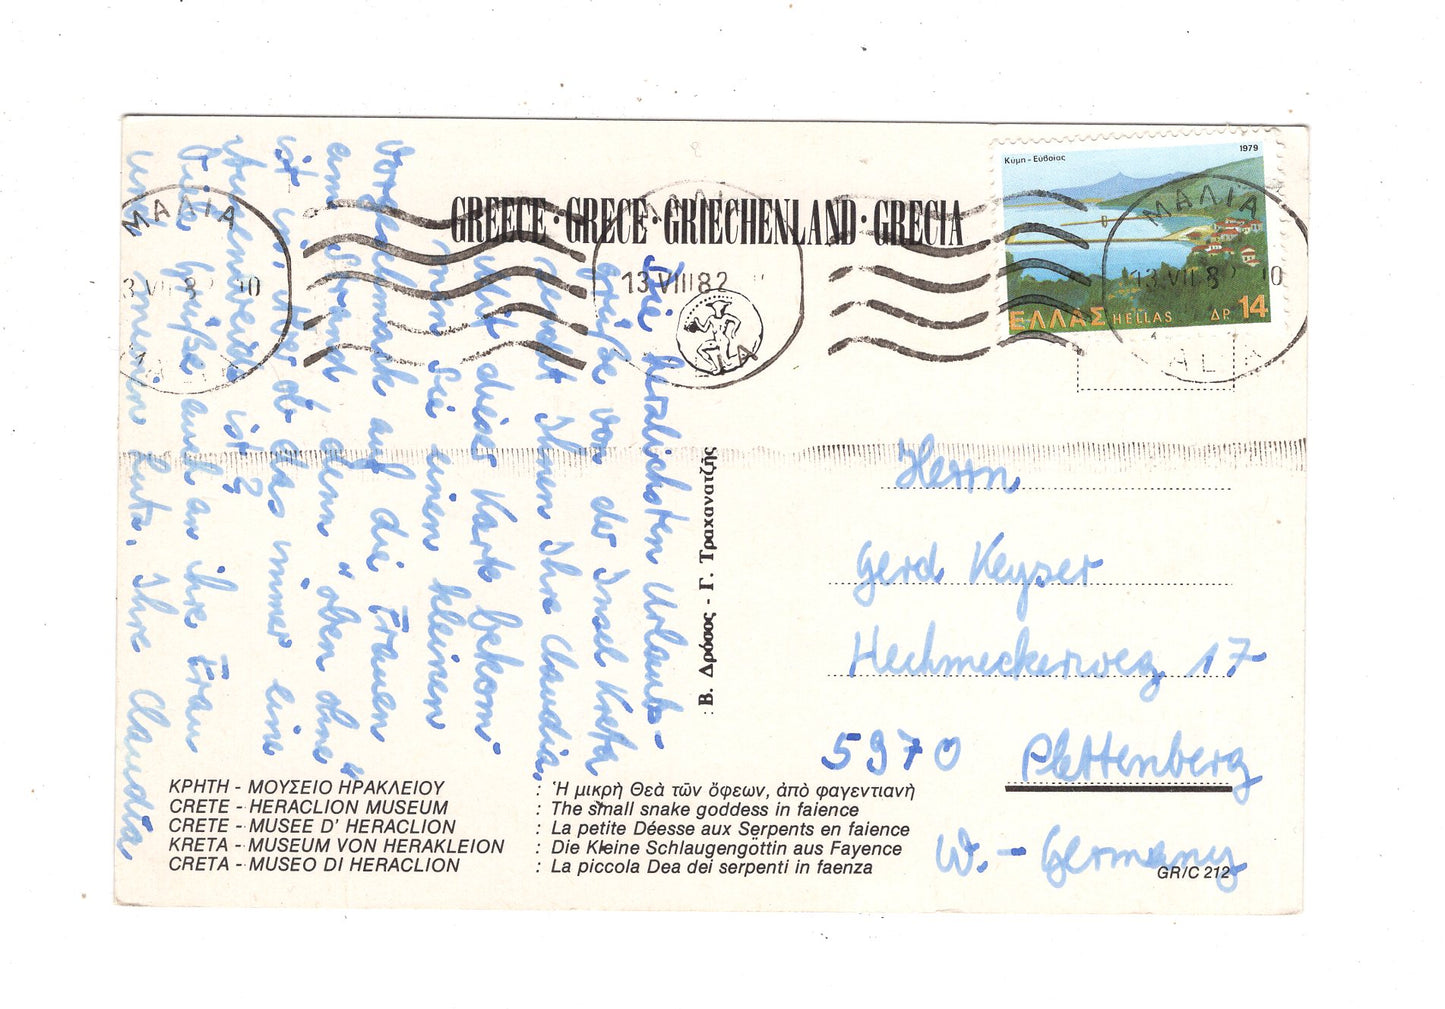 GREECE · GRECE · GRIECHENLAND · GRECIA
Κύμη - Εύβοίας
1979
ΕΛΛΑΣ HELLAS ΔΡ 14
ΜΑΛΙΑ
13 VIII 82
ΜΑΛΙΑ
13 VIII 82 10
Die herzlichsten Urlaub-
grüße von der Insel Kreta
sendet Ihnen Ihre Claudia.
mit dieser Karte bekom-
men Sie einen kleinen
Vorgeschmack auf die Frauen
am Strand, denn "oben ohne"
ist in. Ob das immer eine
Augenweide ist?
Liebe Grüße auch an ihre Frau
und meinen Leuten. Ihre Claudia
Herrn
Gerd Keyser
Hechmeckerweg 17
5970 Plettenberg
W. - Germany
Β. Δρόσος - Γ. Τραχανατζής
ΚΡΗΤΗ - ΜΟΥΣΕΙΟ ΗΡΑΚΛΕΙΟΥ : Ἡ μικρὴ Θεὰ τῶν ὄφεων, ἀπὸ φαγεντιανὴ
CRETE - HERACLION MUSEUM : The small snake goddess in faience
CRETE - MUSEE D' HERACLION : La petite Déesse aux Serpents en faience
KRETA - MUSEUM VON HERAKLEION : Die Kleine Schlaugengöttin aus Fayence
CRETA - MUSEO DI HERACLION : La piccola Dea dei serpenti in faenza
GR/C 212